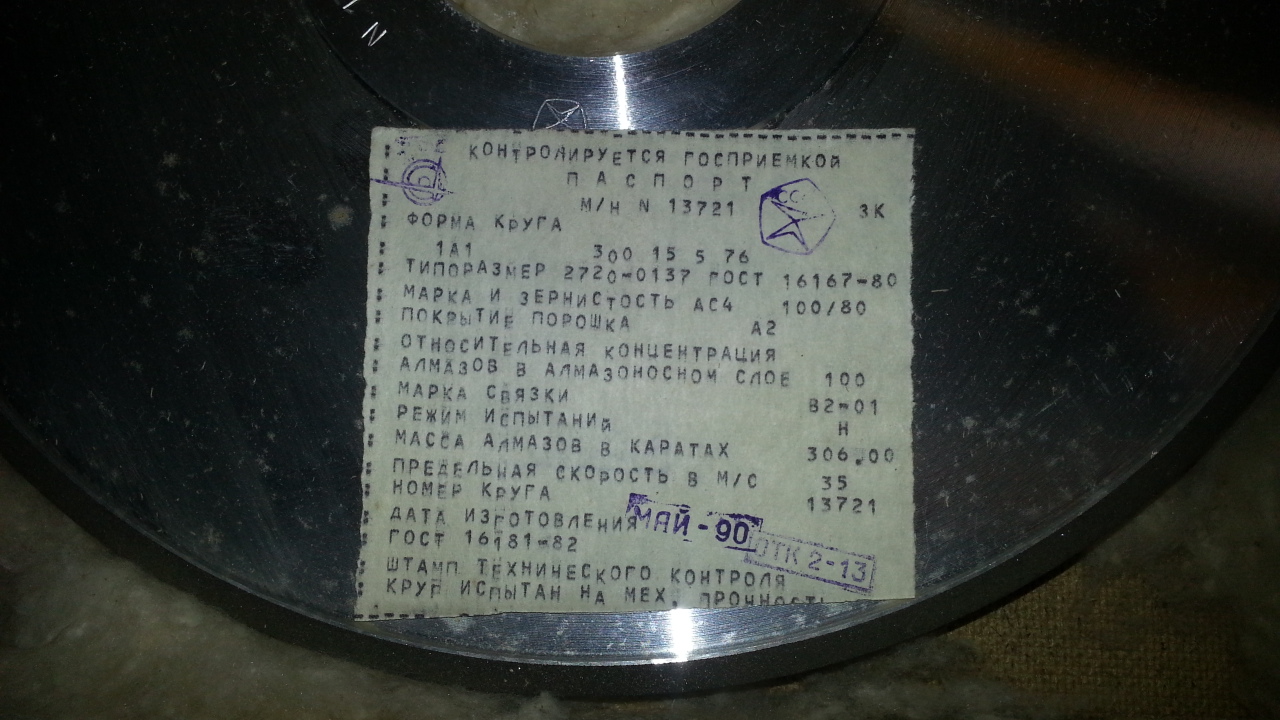 КОНТРОЛИРУЕТСЯ ГОСПРИЕМКОЙ
ПАСПОРТ
М/Н N 13721 ЗК
ФОРМА КРУГА
1А1 300 15 5 76
ТИПОРАЗМЕР 2720-0137 ГОСТ 16167-80
МАРКА И ЗЕРНИСТОСТЬ АС4 100/80
ПОКРЫТИЕ ПОРОШКА А2
ОТНОСИТЕЛЬНАЯ КОНЦЕНТРАЦИЯ
АЛМАЗОВ В АЛМАЗОНОСНОМ СЛОЕ 100
МАРКА СВЯЗКИ В2-01
РЕЖИМ ИСПЫТАНИЙ Н
МАССА АЛМАЗОВ В КАРАТАХ 306.00
ПРЕДЕЛЬНАЯ СКОРОСТЬ В М/С 35
НОМЕР КРУГА 13721
ДАТА ИЗГОТОВЛЕНИЯ МАЙ-90
ГОСТ 16181-82
ОТК 2-13
ШТАМП ТЕХНИЧЕСКОГО КОНТРОЛЯ
КРУГ ИСПЫТАН НА МЕХ. ПРОЧНОСТЬ